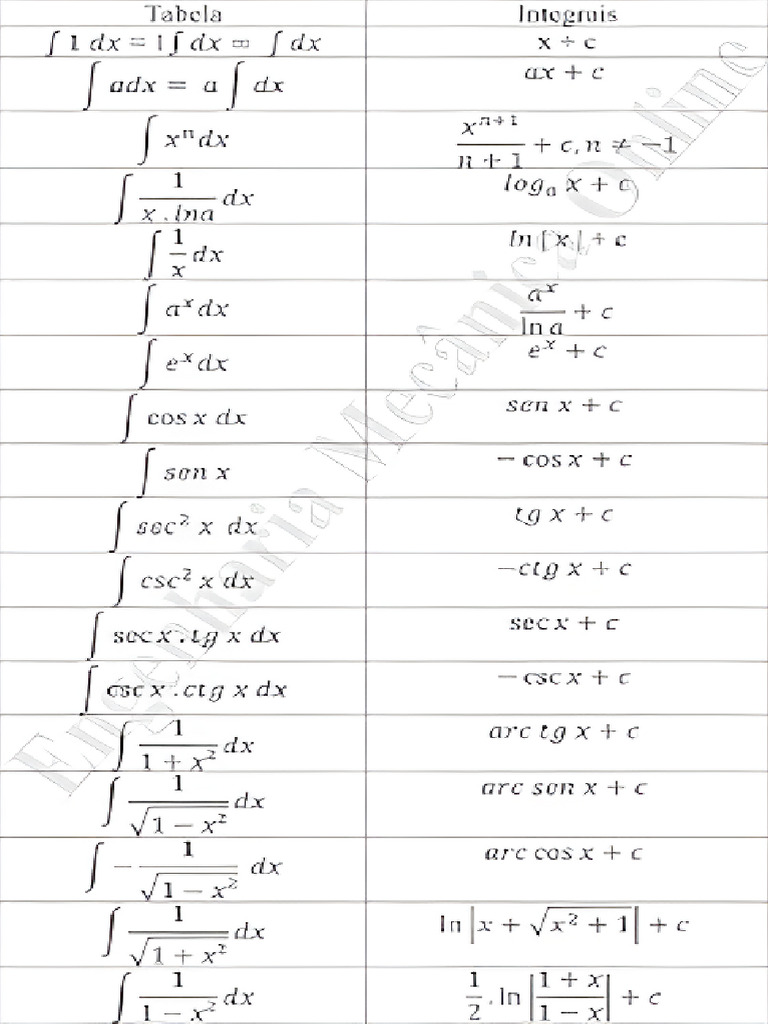 Tabela Integrais
∫ 1 dx = 1∫ dx = ∫ dx x + c
∫ adx = a ∫ dx ax + c
∫ xⁿ dx xⁿ⁺¹/(n + 1) + c, n ≠ −1
∫ 1/(x . lna) dx logₐ x + c
∫ 1/x dx ln |x| + c
∫ aˣ dx aˣ/ln a + c
∫ eˣ dx eˣ + c
∫ cos x dx sen x + c
∫ sen x − cos x + c
∫ sec² x dx tg x + c
∫ csc² x dx −ctg x + c
∫ sec x . tg x dx sec x + c
∫ csc x . ctg x dx − csc x + c
∫ 1/(1 + x²) dx arc tg x + c
∫ 1/√(1 − x²) dx arc sen x + c
∫ − 1/√(1 − x²) dx arc cos x + c
∫ 1/√(1 + x²) dx ln |x + √(x² + 1)| + c
∫ 1/(1 − x²) dx 1/2 . ln |(1 + x)/(1 − x)| + c
Engenharia Mecânica Online